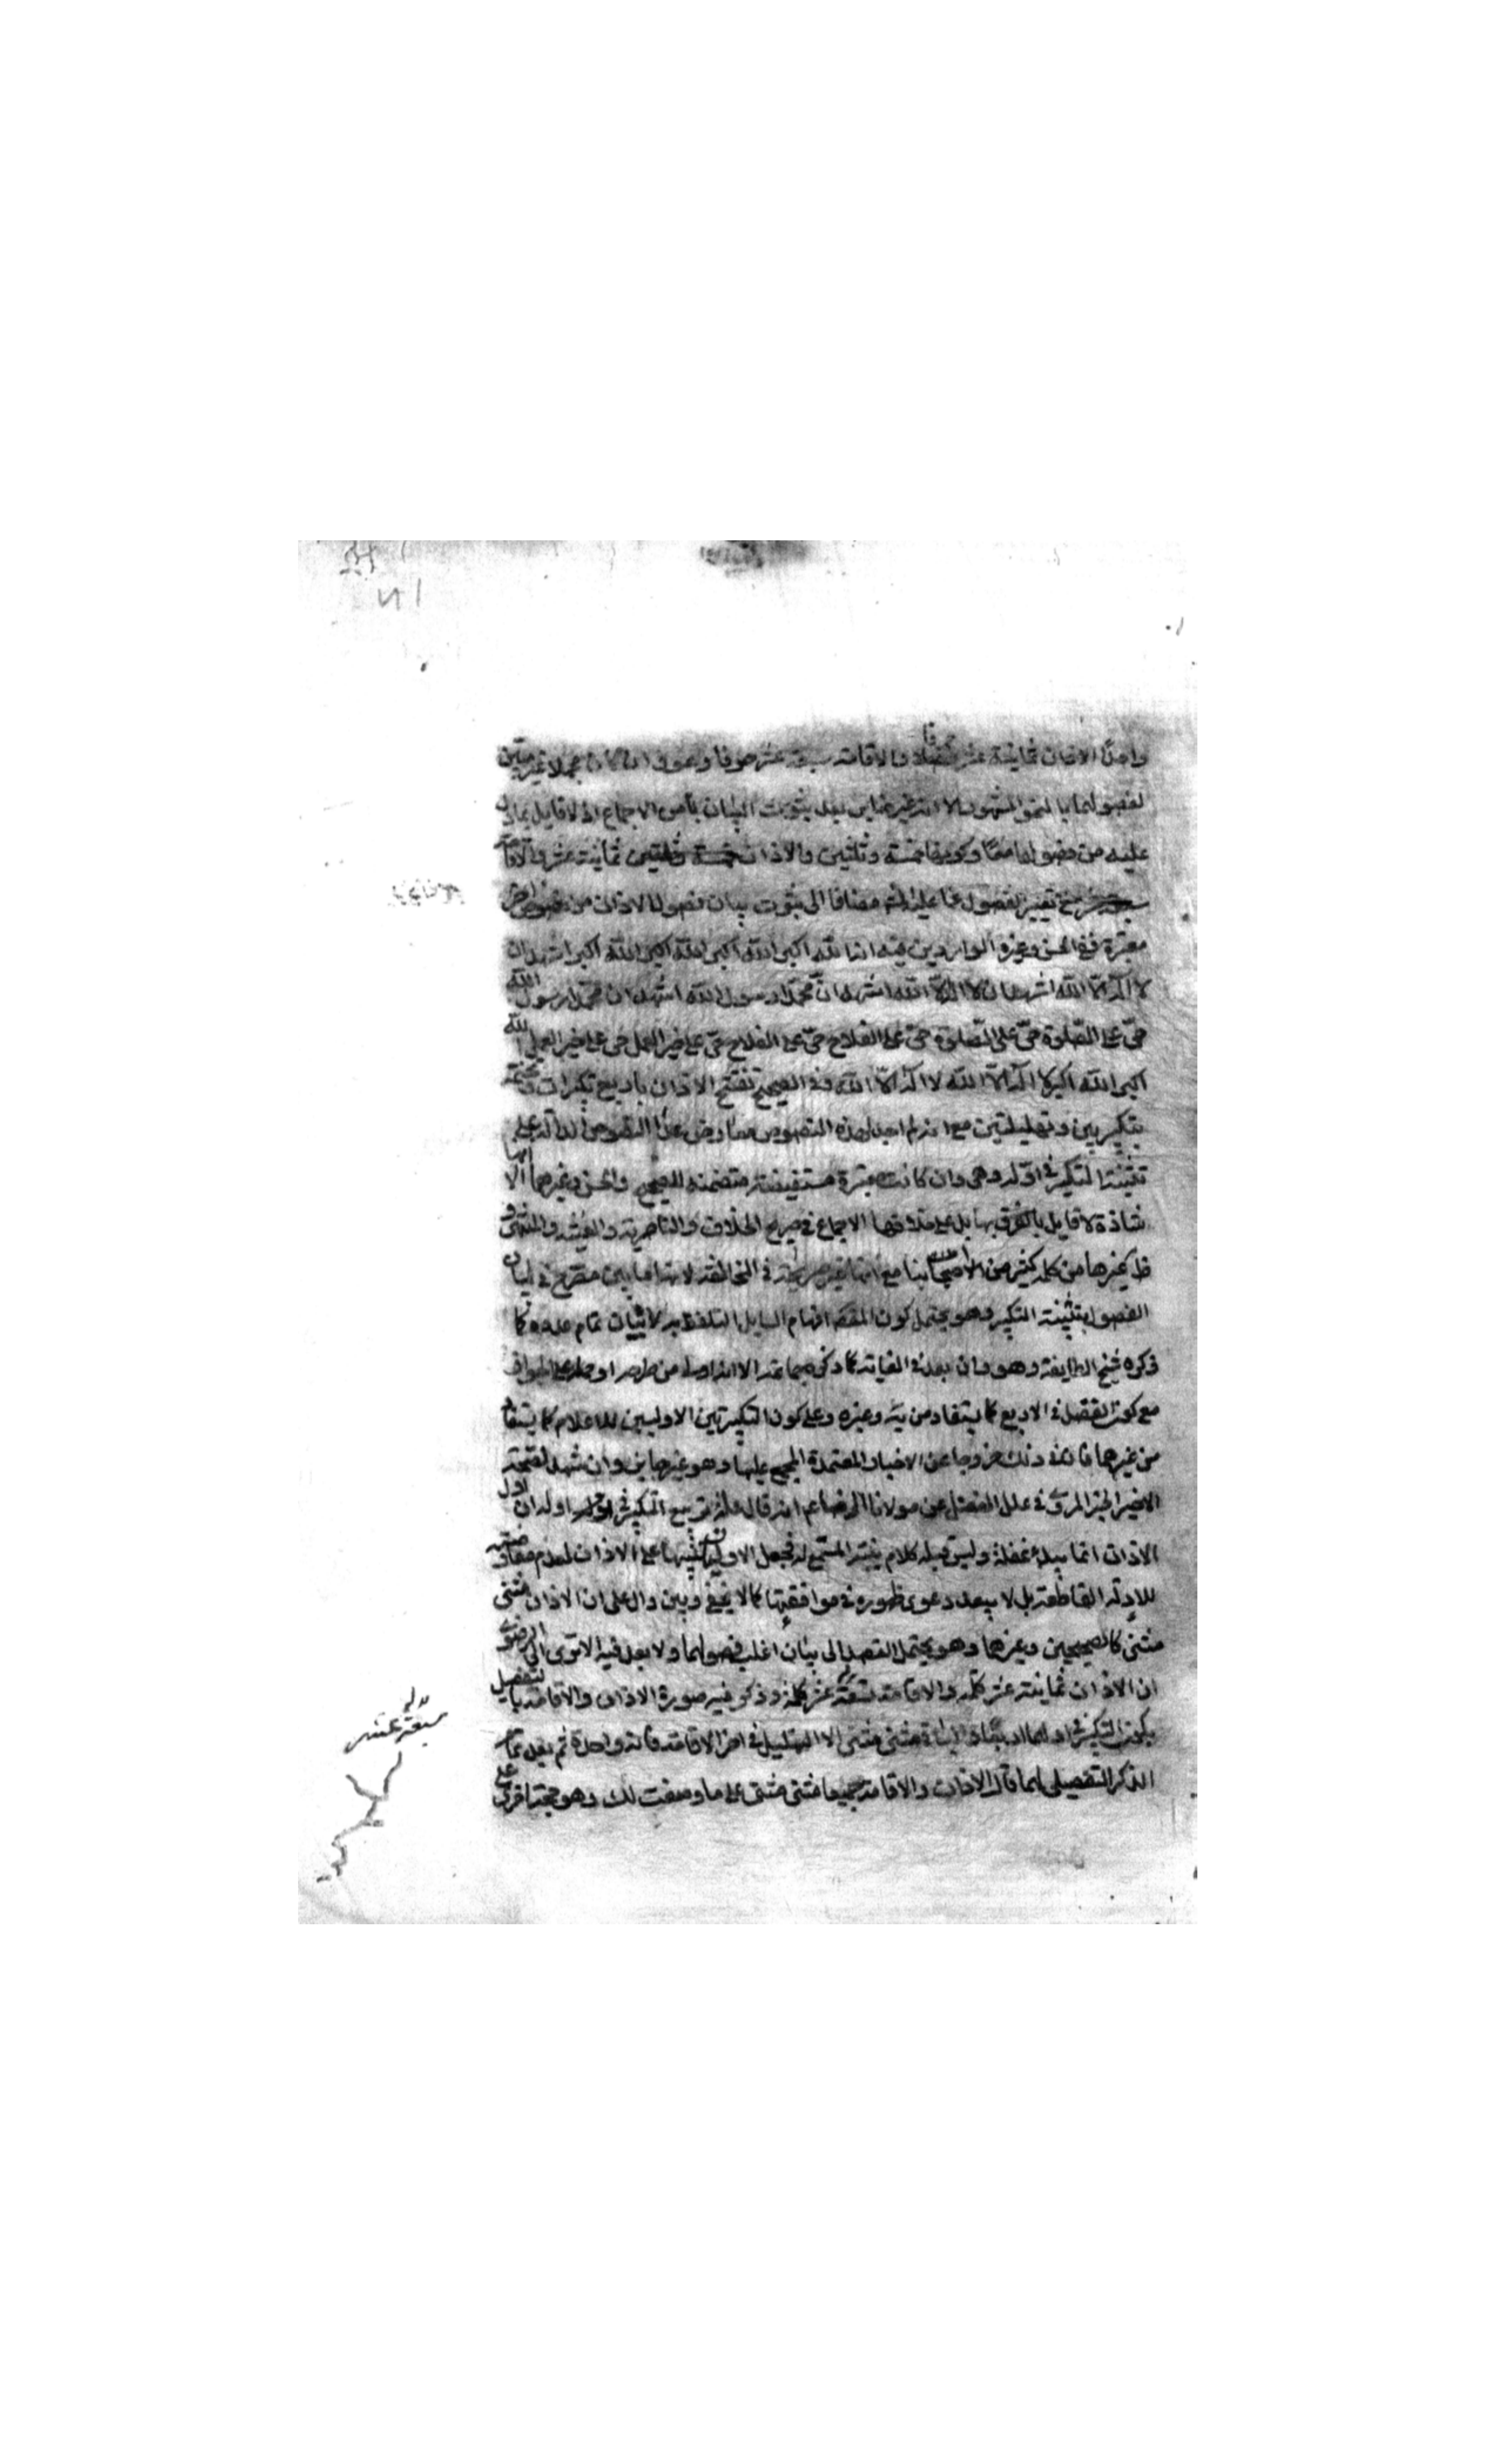 واحدا الاذان ثمانية عشر حرفا والاقامة سبعة عشر حرفا وهو وان كان مجملا غير مبين
لفصولهما بالنحو المشهور الا انه غير ضاير بعد ثبوت البيان بأمر الاجماع اذ لا قايل
عليه من فصولهما معا وكونهما خمسة وثلثين والاذان ثمانية عشر والاقامة
سبعة عشر مع تغيير الفصول عما عليه المشهور مضافا الى ثبوت بيان فصول الاذان من نصوص اخر
معتبرة ففي الحسن وغيره الواردين فيه انه الله اكبر الله اكبر الله اكبر الله اكبر اشهد ان
لا اله الا الله اشهد ان لا اله الا الله اشهد ان محمدا رسول الله اشهد ان محمدا رسول الله
حي على الصلوة حي على الصلوة حي على الفلاح حي على الفلاح حي على خير العمل حي على خير العمل الله
اكبر الله اكبر لا اله الا الله لا اله الا الله وفي الصحيح تفتتح الاذان باربع تكبيرات وتختمه
بتكبيرتين وتهليلتين مع انه لم اجد لهذه النصوص معارض عدا النصوص الدالة على
تثنية التكبير في اوله وهي وان كانت معتبرة مستفيضة متضمنة للصحيح والحسن وغيرهما الا انها
شاذة لا قايل بها بل على خلافها الاجماع في صريح الخلاف والناصرية والغنية والمنتهى و
ظ غيرها من كلمة كثير من اصحابنا مع انها غير صريحة في المخالفة لانها ما بين مصرح في بيان
الفصول بتثنية التكبير وهو يحتمل كون المقصود افهام السايل التلفظ به لا بيان تمام عدده كما
ذكره شيخ الطايفة وهو وان بعد في الغاية كما ذكره جماعة الا انه اولى من طرحه او حمله على الجواز
مع كون الفضل في الاربع كما يستفاد من يه وغيره وعلى كون التكبيرتين الاوليين للاعلام كما يستفاد
من غيرهما فان في ذلك خروجا عن الاخبار المعتمدة المجمع عليها وهو غير جايز وان شهد لصحة
الاخير الخبر المروي في علل الفضل عن مولانا الرضا ع م انه قال علة تربيع التكبير في اوله ان اول
الاذان انما يبدأ غفلة وليس قبله كلام ينبه المستمع له فجعل الاوليان تنبيها على الاذان لعدم مقاومته
للادلة القاطعة بل لا يبعد دعوى ظهوره في موافقتها كما لا يخفى وبين دال على ان الاذان مثنى
مثنى كالصحيحين وغيرهما وهو يحتمل القصد الى بيان اغلب فصولهما ولا بعد فيه الا ترى الى الرضوي
ان الاذان ثمانية عشر كلمة والاقامة تسعة عشر كلمة وذكر فيه صورة الاذان والاقامة بالتفصيل
بكون التكبير في اولهما اربعا والباقي مثنى مثنى الا التهليل في اخر الاقامة فانه واحدة ثم بعد تمام
الذكر التفصيلي لهما قال الاذان والاقامة جميعا مثنى مثنى على ما وصفت لك وهو حجة اخرى على
سبعة عشر